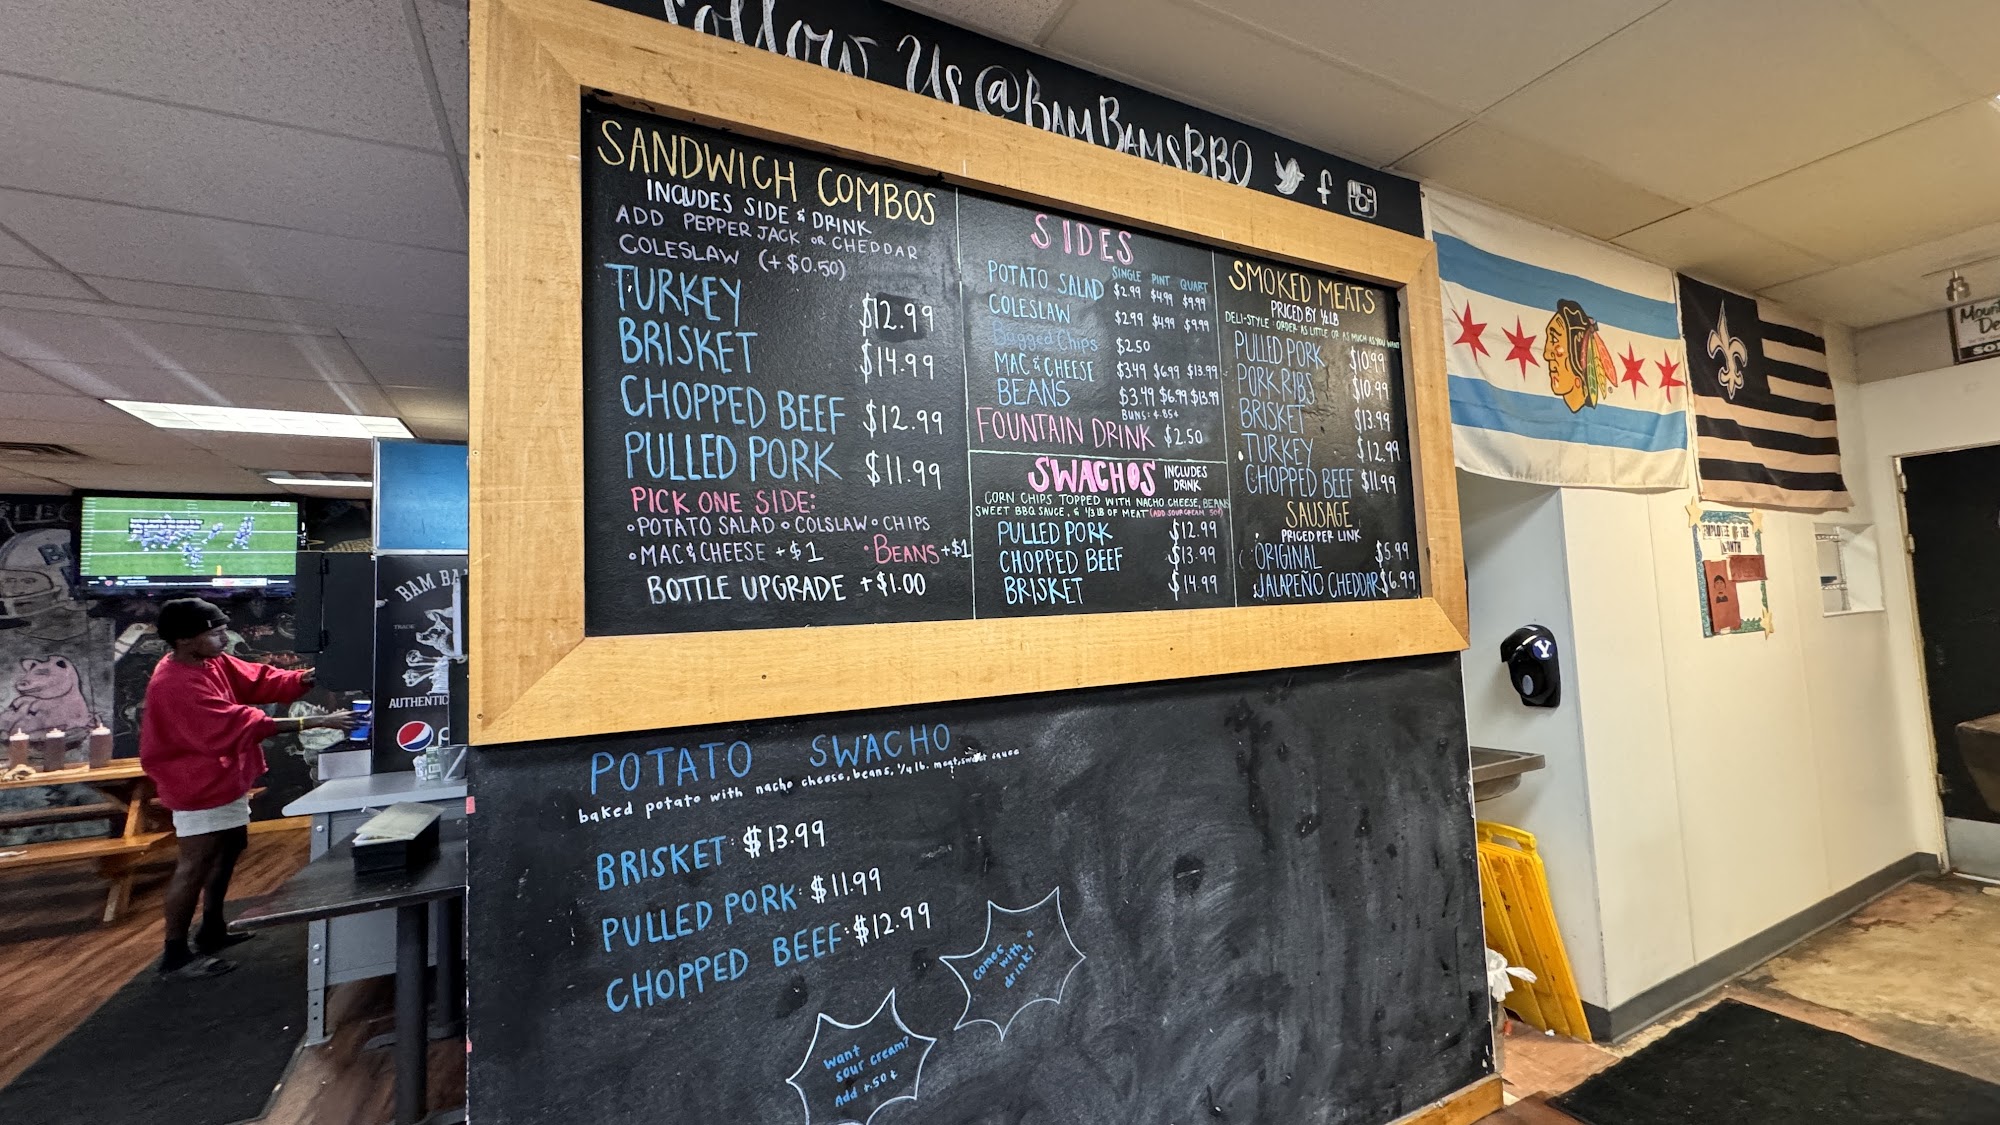 Follow Us @BamBamsBBQ
SANDWICH COMBOS
INCLUDES SIDE & DRINK
ADD PEPPER JACK OR CHEDDAR
COLESLAW (+$0.50)
TURKEY $12.99
BRISKET $14.99
CHOPPED BEEF $12.99
PULLED PORK $11.99
PICK ONE SIDE:
• POTATO SALAD • COLSLAW • CHIPS
• MAC & CHEESE +$1 • BEANS +$1
BOTTLE UPGRADE +$1.00
SIDES
SINGLE PINT QUART
POTATO SALAD $2.99 $4.99 $9.99
COLESLAW $2.99 $4.99 $9.99
Bagged Chips $2.50
MAC & CHEESE $3.49 $6.99 $13.99
BEANS $3.99 $6.99 $13.99
BUNS: +.85¢
FOUNTAIN DRINK $2.50
SWACHOS INCLUDES DRINK
CORN CHIPS TOPPED WITH NACHO CHEESE, BEANS
SWEET BBQ SAUCE, & 1/3 LB OF MEAT (ADD SOUR CREAM .50¢)
PULLED PORK $12.99
CHOPPED BEEF $13.99
BRISKET $14.99
SMOKED MEATS
PRICED BY ½ LB
DELI-STYLE · ORDER AS LITTLE OR AS MUCH AS YOU WANT
PULLED PORK $10.99
PORK RIBS $10.99
BRISKET $13.99
TURKEY $12.99
CHOPPED BEEF $11.99
SAUSAGE
PRICED PER LINK
ORIGINAL $5.99
JALAPEÑO CHEDDAR $6.99
POTATO SWACHO
baked potato with nacho cheese, beans, 1/4 lb. meat, sweet sauce
BRISKET: $13.99
PULLED PORK: $11.99
CHOPPED BEEF: $12.99
comes
with a
drink!
Want
sour cream?
Add +.50¢
BAM BA
AUTHENTIC
EMPLOYEE OF THE
MONTH
Y